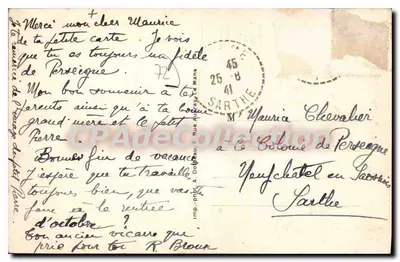 Merci mon cher Maurice
de ta petite carte. Je vois
que tu es toujours un fidèle
de Perseigne.
72
Mon bon souvenir à tes
parents ainsi qu'à ta bonne
grand'mère et le petit
Pierre.
Bonne fin de vacances
J'espère que tu travailles
toujours bien, que vas-tu
faire à la rentrée
d'octobre ?
ton ancien vicaire qui
prie pour toi R. Broux
de petit Pierre
45
25 - 8
41
SARTHE
Mr Maurice Chevalier
à la Colonie de Perseigne
Neufchatel en Saosnois
Sarthe
CPA COLLECTION